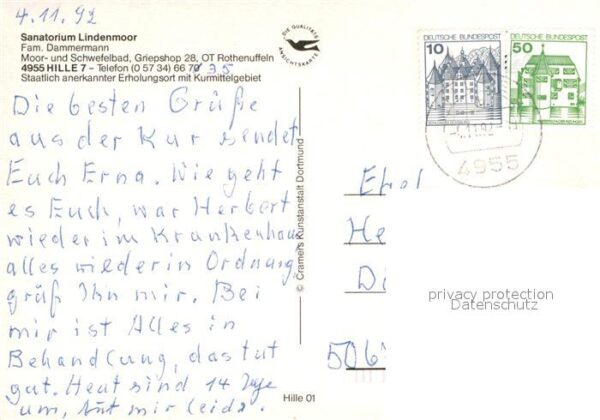 4.11.92
Sanatorium Lindenmoor
Fam. Dammermann
Moor- und Schwefelbad, Griepshop 28, OT Rothenuffeln
4955 HILLE 7 - Telefon (0 57 34) 66 79
35
Staatlich anerkannter Erholungsort mit Kurmittelgebiet
DIE QUALITÄTS ANSICHTSKARTE
Die besten Grüße
aus der Kur sendet
Euch Erna. Wie geht
es Euch, war Herbert
wieder im Krankenhaus
alles wieder in Ordnung,
grüß Ihn mir. Bei
mir ist Alles in
Behandlung, das tut
gut. Heut sind 14 Tage
um, tut mir leid.
© Cramers Kunstanstalt Dortmund
Hille 01
DEUTSCHE BUNDESPOST
10
DEUTSCHE BUNDESPOST
50
4955
He
Di
506
privacy protection
Datenschutz